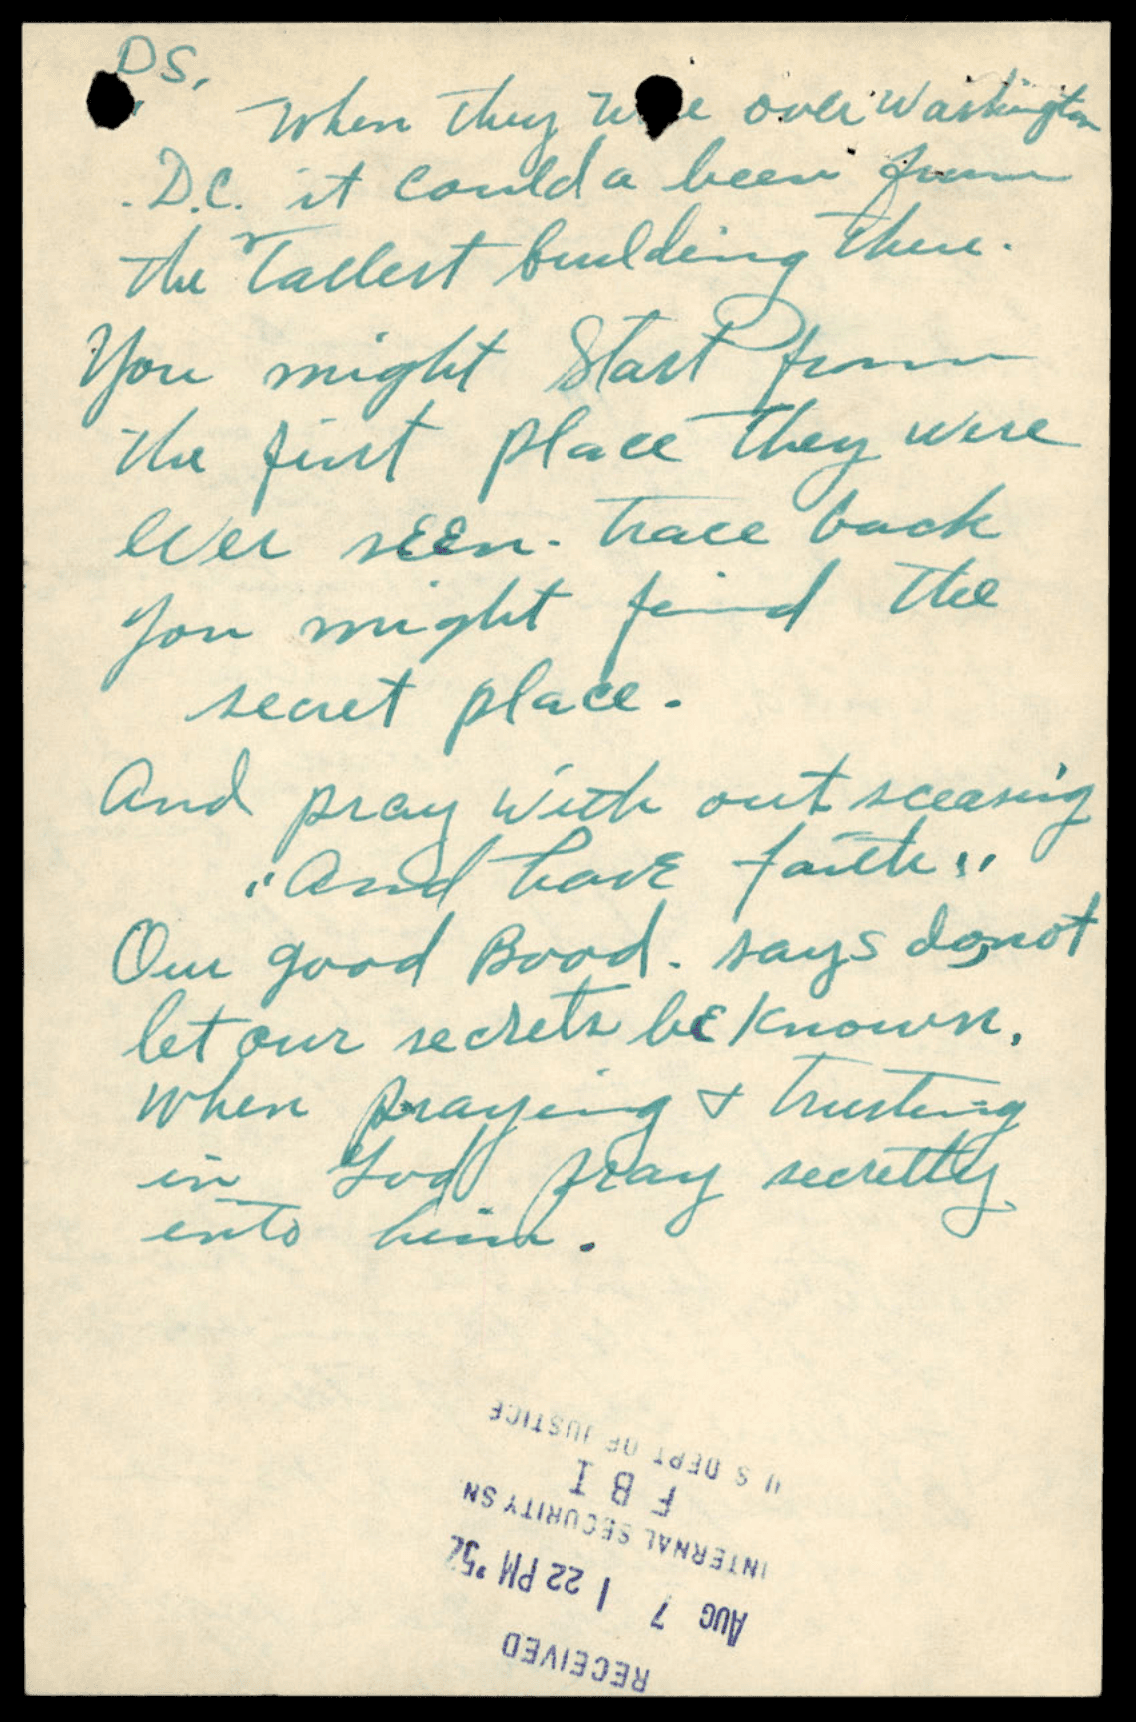 P.S.
When they were over Washington
D.C. it coulda been from
the Tallest building there.
You might Start from
the first place they were
ever seen. trace back
you might find the
secret place.
And pray with out sceasing
"And have faith"
Our good Bood. says do not
let our secrets be known.
when praying & trusting
in God pray secretly
into him.
RECEIVED
AUG 7 1 22 PM '52
INTERNAL SECURITY SN
F B I
U S DEPT OF JUSTICE